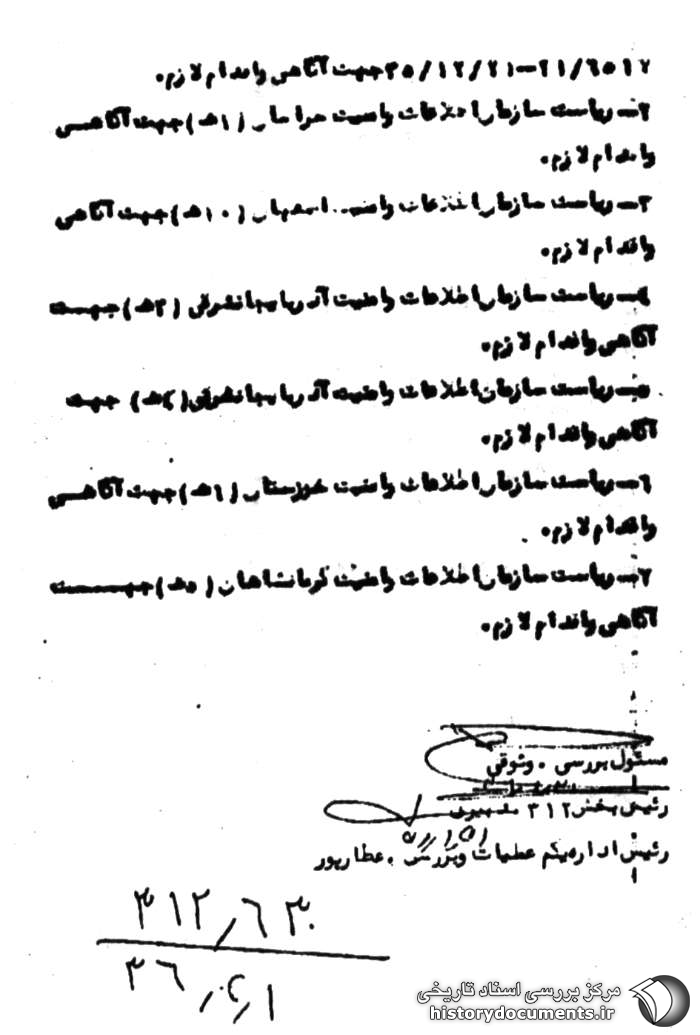 ۲۱/۶۵۱۷-۳۵/۱۲/۲۱ جهت آگاهی واقدام لازم.
۲- ریاست سازمان اطلاعات وامنیت خراسان (۱ﻫ) جهت آگاهی
واقدام لازم.
۳- ریاست سازمان اطلاعات وامنیت اصفهان (۱۰ﻫ) جهت آگاهی
واقدام لازم.
ریاست سازمان اطلاعات وامنیت آذربایجانشرقی (۳ﻫ) جهت
آگاهی واقدام لازم.
ریاست سازمان اطلاعات وامنیت آذربایجانشرقی (۴ﻫ) جهت
آگاهی واقدام لازم.
۶- ریاست سازمان اطلاعات وامنیت خوزستان (۶ﻫ) جهت آگاهی
واقدام لازم.
۷- ریاست سازمان اطلاعات وامنیت کرمانشاهان (۵ﻫ) جهت
آگاهی واقدام لازم.
مسئول بررسی . وثوقی
رئیس بخش ۳۱۲
رئیس اداره یکم عملیات وبررسی . عطارپور
۳۱۲٫۶۳۰
۳۶٫۴٫۱
مرکز بررسی اسناد تاریخی
historydocuments.ir